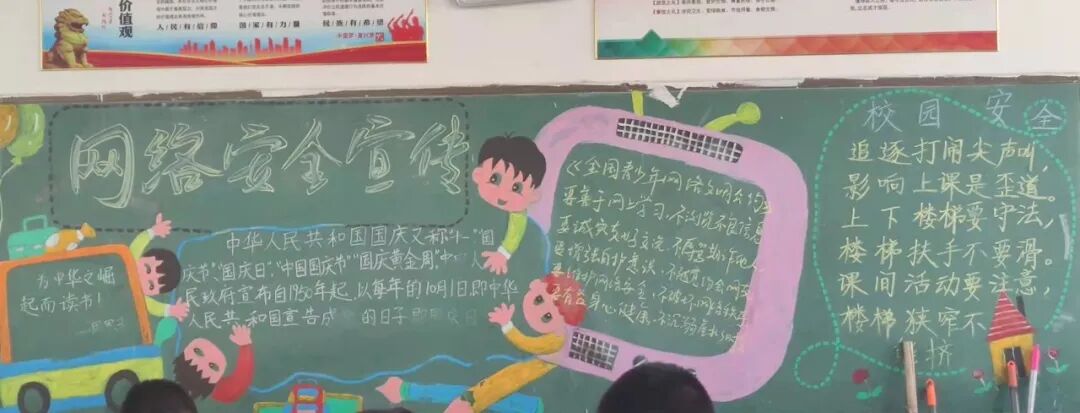 价值观
人/民/有/信/仰
国/家/有/力/量
民/族/有/希/望
网络安全宣传
为中华之崛
起而读书!
中华人民共和国国庆又称十一"国
庆节""国庆日""中国国庆节""国庆黄金周"中 人
民政府宣布自1950年起,以每年的10月1日即中华
人民共和国宣告成 的日子 国庆日
《全国青少年网络文明公约》
要善于网上学习,不浏览不良信息
要诚实友好交流,不侮辱欺诈他人
要增强自护意识,不随意约会网友
要维护网络安全,不破坏网络秩序
要有益身心健康,不沉溺虚拟时
校园安全
追逐打闹尖声叫,
影响上课是歪道。
上下楼梯要守法,
楼梯扶手不要滑。
课间活动要注意,
楼梯狭窄不
挤